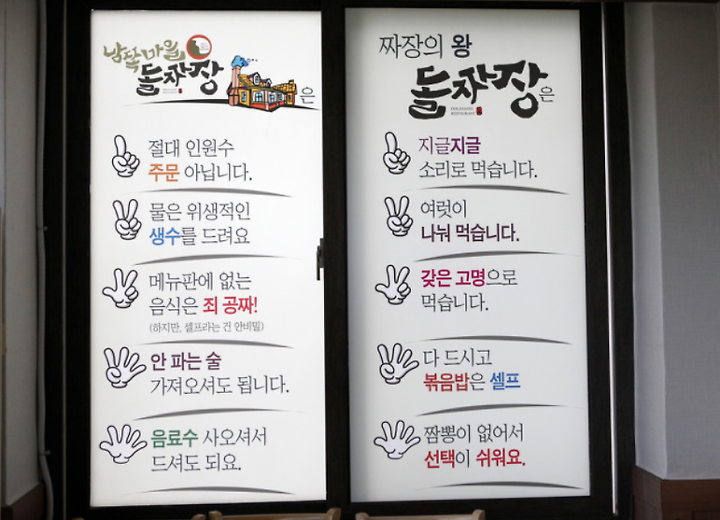 남촌마을
돌짜장은
절대 인원수
주문 아닙니다.
물은 위생적인
생수를 드려요
메뉴판에 없는
음식은 죄 공짜!
(하지만, 셀프라는 건 안비밀)
안 파는 술
가져오셔도 됩니다.
음료수 사오셔서
드셔도 되요.
짜장의 왕
돌짜장은
지글지글
소리로 먹습니다.
여럿이
나눠 먹습니다.
갖은 고명으로
먹습니다.
다 드시고
볶음밥은 셀프
짬뽕이 없어서
선택이 쉬워요.